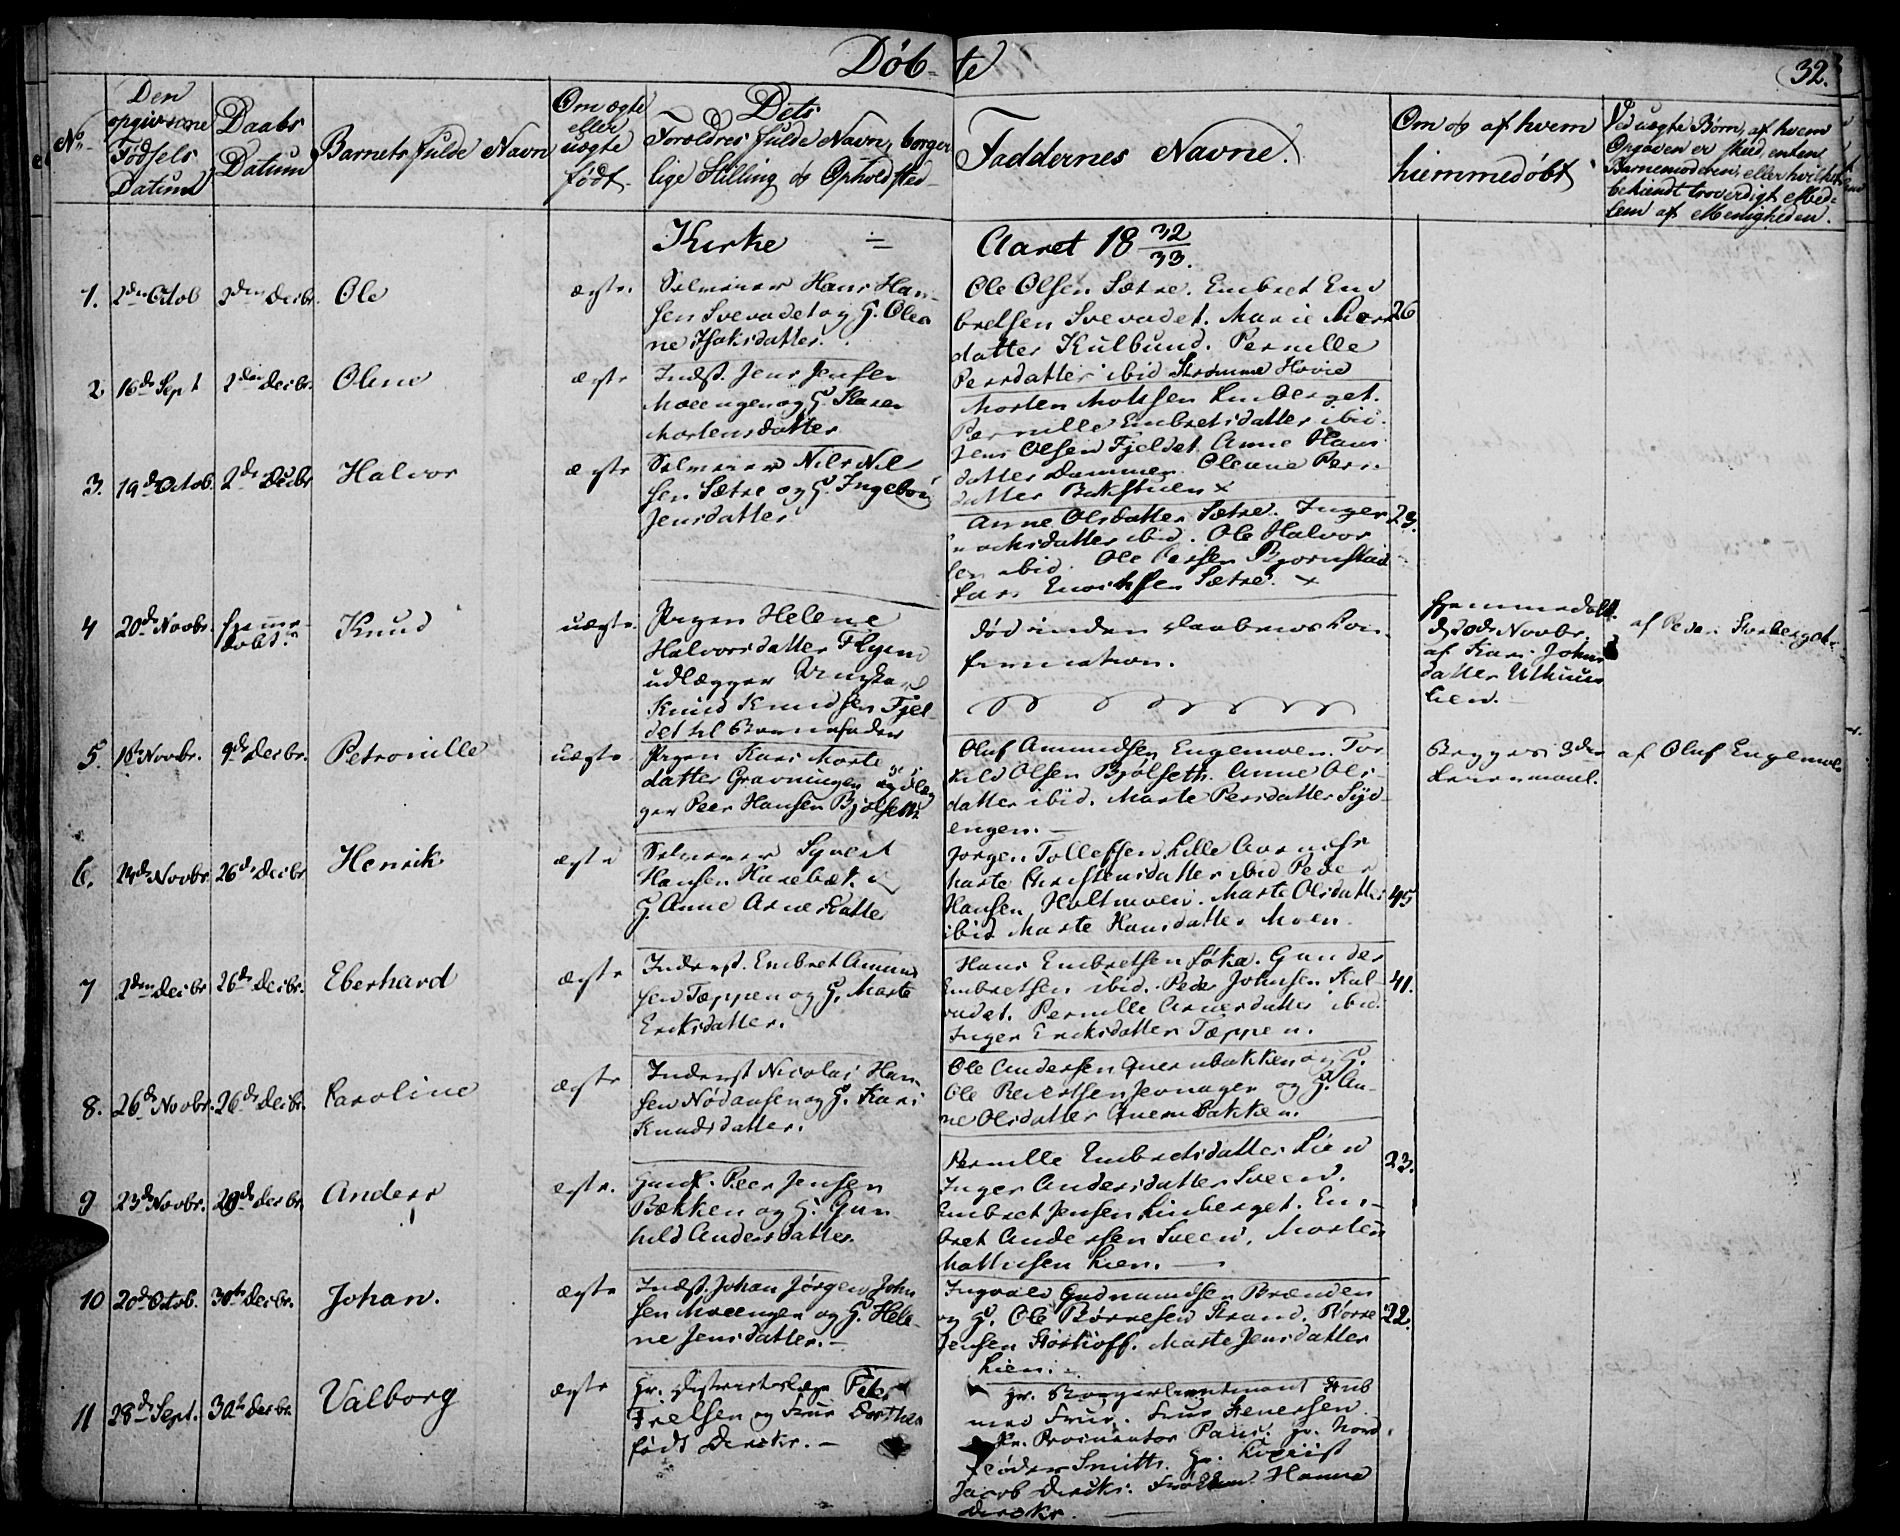 Døb-te
32.
No
Den
opgivne
Fødsels
Datum
Daabs
Datum
Barnets fulde Navn
Om ægte
eller
uægte
født.
Dets
Foreldres fulde Navn, borger
lige Stilling og Opholdsted
Faddernes Navne.
Om og af hvem
hiemmedøbt
Ved uægte Børn, af hvem
Opgaven er skeed, enten
Barnemoderen, eller hvilket
bekiendt troverdigt Med-
lem af Menigheden.
Kirke =
Aaret 18 32/33.
1. 2den Octob 2den Decbr. Ole ægte.
Selveier Hans Han-
sen Svevadet og H. Olea
ne Isaksdatter.
Ole Olsen Sætre. Embret Em
bretsen Svevadet. Marie Lars
datter Kulbund. Pernille
Persdatter ibid Strømme Hovie
26
2 16de Sept 2den Decbr. Oline ægte
Indst. Jens Jensen
Moeengen og H. Karen
Mortensdatter
Morten Mohsen Linberget.
Pernille Embretsdatter ibid.
Jens Olsen Fjeldet Anne Hans
datter Dammen. Oleane Pers-
datter Bakstuen x
3. 19de Octob. 2de Decbr Halvor ægte
Selveier Nils Nil
sen Sætre og H. Ingeborg
Jensdatter
Anne Olsdatter Sætre. Inger
datter ibid. Ole Halvor
sen ibid. Ole Persen Bjørnstad
Lars Enochsen Sætre. x
23.
4 20de Novbr. hjemme-
døbt Knud uægte.
Pigen Helene
Halvorsdatter Flyen
udlægger Ungkarl
Knud Knudsen Fjel-
det til Barnefader
død inden Daabens Con-
firmation.
hjemmedøbt
d 20de Novbr.
af Kari Johns
datter Uthuus
lien.
af Peder Svebergat
5. 16de Novbr. 9de Decbr. Petronille uægte.
Pigen Kari Marte
datter Gravningen og udlæg
ger Peer Hansen Bjølseth
Oluf Amundsen Engemoen. Tor
kild Olsen Bjølseth. Anne Ols-
datter ibid. Marte Persdatter Syd-
engen.
Begges 3die
Leiermaal.
af Oluf Engemoe
6. 24de Novbr. 26de Decbr Henrik ægte
Selveier Syvert
Hansen Harebæk. og
H. Anne Arnesdatter
Jørgen Tollefsen Lille Aarnæs
Marte Christensdatter ibid Peder
Hansen Holtmoen. Marte Olsdatter
ibid Marte Hansdatter Moen.
45
7 2den Decbr 26de Decbr. Eberhard ægte
Inderst. Embret Amund
sen Tæppen og H. Marte
Eriksdatter.
Hans Embretsen Løka. Gunder
Embretsen ibid. Peder Johnsen Kul-
vadet. Pernille Arnesdatter ibid.
Inger Eriksdatter Tæppen.
41.
8. 26de Novbr. 26de Decbr. Caroline ægte
Inderst Nicolai Han-
sen Nødaasen og H. Kari
Knudsdatter.
Ole Andersen Quernbakken og H.
Ole Reiersen Jevnager og H. An-
ne Olsdatter Quernbakken.
9 23de Novbr. 29de Decbr. Anders ægte.
Peer Jensen
Bækken og H. Gun
hild Andersdatter
Pernille Embretsdatter Lien
Inger Andersdatter Sveen.
Embret Jensen Linberget. Em-
bret Andersen Sveen. Morten
Mathisen Lien.
23.
10 20de Octob. 30te Decbr. Johan. ægte
Indst. Johan Jørgen John
sen Moeengen og H. Hele-
ne Jensdatter.
Ingvald Gudmundsen Brænden
og H. Ole Børresen Strand. Børre
Jensen Storhoff. Marte Jensdatter
Lien.
22.
11 28de Sept. 30te Decbr. Valborg ægte
Hr. Districtslæge Peter
Nielsen og Frue Dorthea
født Dircks.
Hr. Borgerlieutenant Hub
med Frue. Frue Stenersen
Hr. Procurator Paus. Hr. Nord.
Smith. Hr. Copiist
Jacob Dircks. Frøken Hanna
Dircks.